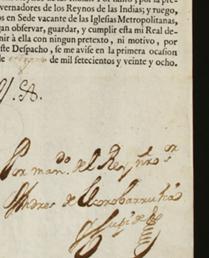 vernadores de los Reynos de las Indias; y ruego,
os en Sede vacante de las Iglesias Metropolitanas,
gan observar, guardar, y cumplir esta mi Real de-
nir à ella con ningun pretexto, ni motivo, por
ste Despacho, se me avise en la primera ocasion
de mil setecientos y veinte y ocho.
Por man.do del Rey nro s.r
Andres de